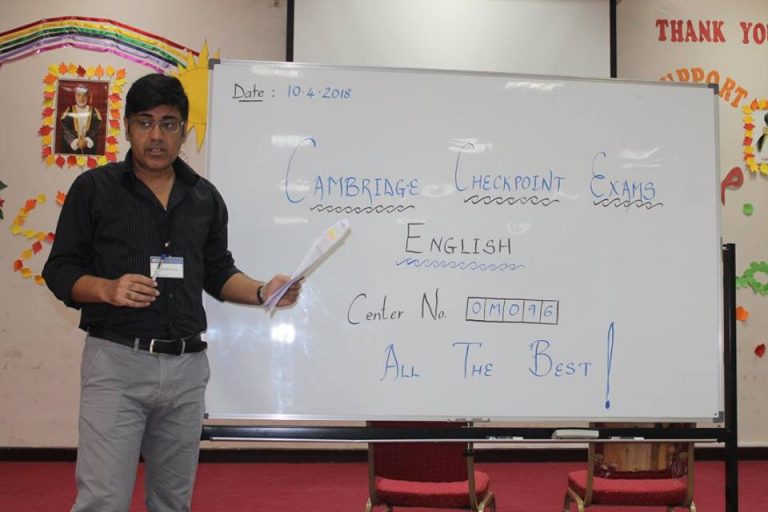 THANK YOU
SUPPORT
Date : 10.4.2018
CAMBRIDGE CHECKPOINT EXAMS
ENGLISH
Center No. OM096
ALL THE BEST!